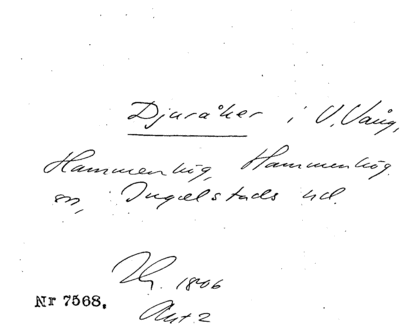 Djuråker i V. Vång,
Hammenhög, Hammenhög
sn, Ingelstads hd.
1806
Nr 7568.
Akt 2